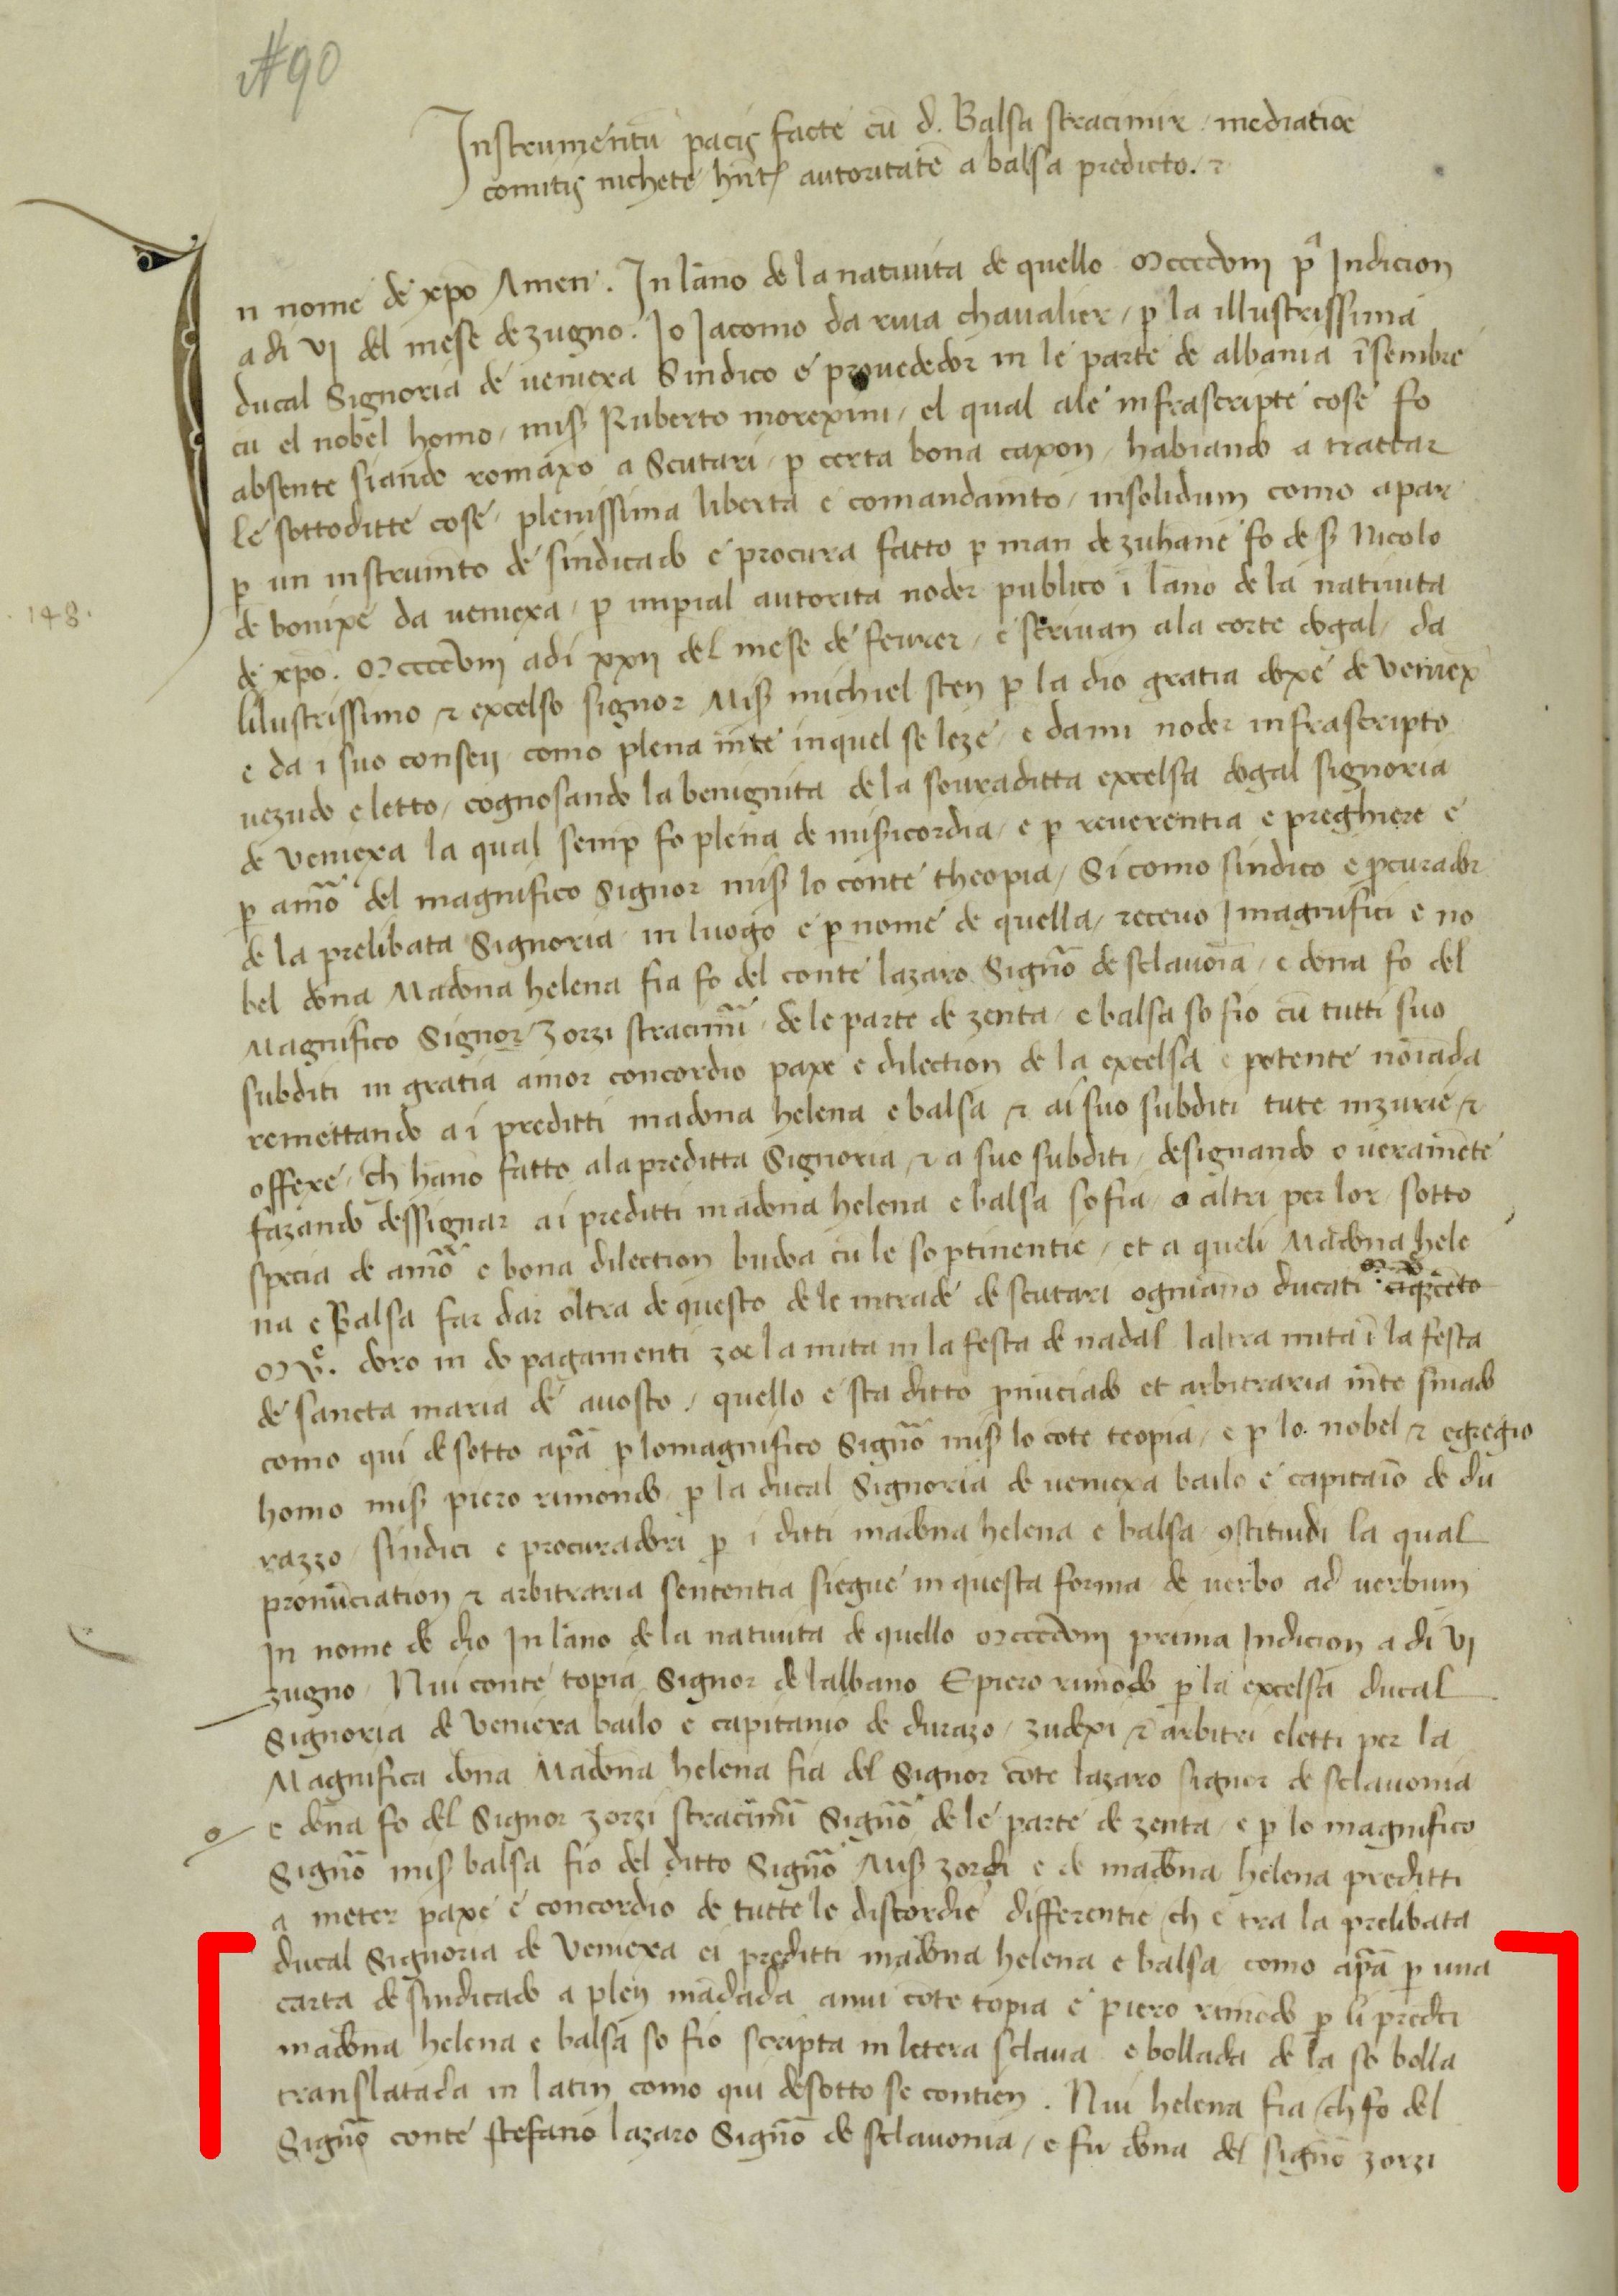 #90
Instrumentū pacis facte cū d. Balsa stracimir. mediatiōe
comitis nichete hñt autoritatē a balsa predicto. ⁊
In nome de xpo Amen. In lāno de la natiuita de quello Mccccviii pª Indicion
adi vi del mese de zugno. Io Iacomo da riua chaualier, p la illustrissima
ducal Signoria de veniexa Sindico e prouededor in le parte de albania īsembre
cū el nobel homo, mis Ruberto morexini, el qual ale infrascripte cose fo
absente siando romaxo a Scutari, p certa bona caxon, habiando a trattar
le sottoditte cose, plenissima liberta e comandamto, insolidum como apar
p un instrumēto de sindicado e procura fatto p man de zuhane fo de s Nicolo
de bonixe da veniexa, p imperial autorita noder publico ī lāno de la natiuita
148.
de xpo. Mccccviii adi xxii del mese de feurer, e scriuan ala corte dogal, da
lilustrissimo ⁊ excelso signor Mis michiel sten p la dio gratia doxe de veniex
e da i suo conseij, como plena mēte in quel se leze, e da mi noder infrascripto
vezudo e letto, cognosando la benignita de la souraditta excelsa dogal signoria
de veniexa la qual semp fo plena de misicordia, e p reuerentia e preghiere e
p amō del magnifico Signor mis lo conte theopia, Si como sindico e pcurador
de la prelibata Signoria in luogo e p nome de quella, receuo I magnifici e no
bel dona Madona helena fia fo del conte lazaro Signō de sclauoīa, e dona fo del
Magnifico Signor Zorzi stracimī, de le parte de zenta, e balsa so fio cū tutti suo
subditi in gratia amor concordio paxe e dilection de la excelsa e potente noīada
remettando a i preditti madona helena e balsa ⁊ ai suo subditi tute inzurie ⁊
offexe, ch hano fatto ala preditta Signoria, ⁊ a suo subditi, designando o veramēte
fazando dessignar a i preditti madona helena e balsa so fia, o altri per lor, sotto
specia de amō e bona dilection budoa cū le so ptinentie, et a queli Madona hele
na e Balsa far dar oltra de questo de le intrade de scutari ogniano ducati cīqcēto
M vᶜ. doro in do pagamenti zoe la mita in la festa de nadal laltra mita ī la festa
de sancta maria de auosto, quello e sta ditto pnūciado et arbitraria mēte sinado
como qui de sotto apā p lo magnifico Signō mis lo cōte teopia, e p lo nobel ⁊ egregio
homo mis piero rimondo p la ducal Signoria de veniexa bailo e capitaīo de du
razzo, sindici e procuradori p i ditti madona helena e balsa ꝯstituidi la qual
pronūciation ⁊ arbitraria sententia siegue in questa forma de verbo ad verbum
In nome de dio In lāno de la natiuita de quello Mccccviii prima Indicion a di vi
zugno, Nui conte topia Signor de lalbano E piero rimōdo p la excelsa ducal
Signoria de Veniexa bailo e capitanio de durazo, zudexi ⁊ arbitri eletti per la
Magnifica dona Madona helena fia del Signor cōte lazaro signor de sclauonia
e dona fo del Signor zorzi stracimī Signō de le parte de zenta, e p lo magnifico
Signō mis balsa fio del ditto Signō Mis zorzi e de madona helena preditti
a meter paxe e concordio de tutte le discordie differentie ch e tra la prelibata
ducal Signoria de Veniexa ei preditti madona helena e balsa como apā p una
carta de sindicado a plen mādada a nui cōte topia e piero rimōdo p li preditti
madona helena e balsa so fio scripta in letera sclaua e bollada de la so bolla
translatada in latin como qui desotto se contien. Nui helena fia ch fo del
Signō conte stefano lazaro Signō de sclauonia, e fu dona del signō zorzi